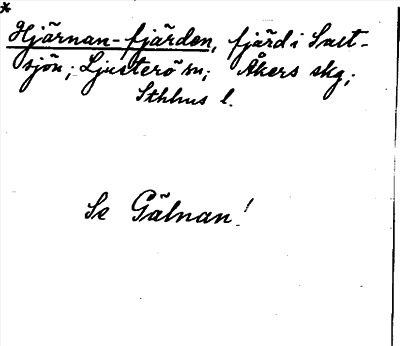 *
Hjärnan-fjärden, fjärd i Salt-
sjön; Ljusterö sn; Åkers skg;
Sthlms l.
Se Gälnan!